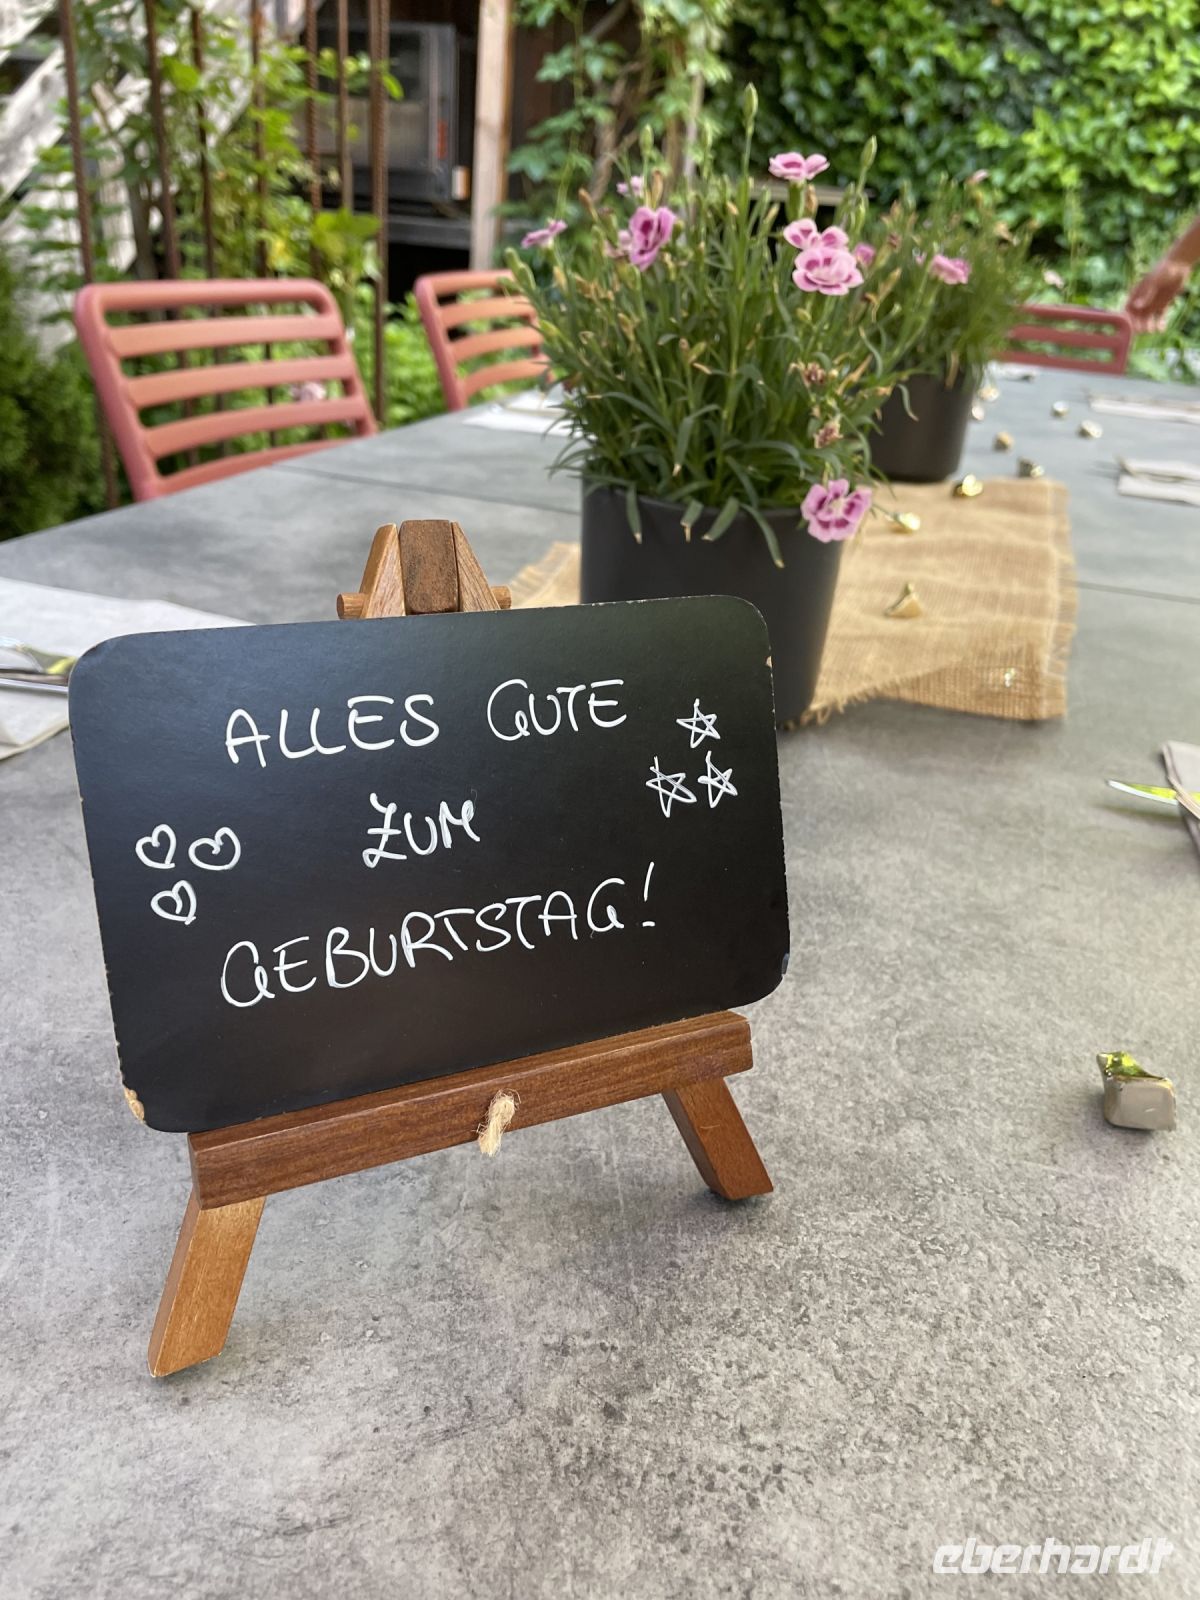 ALLES GUTE
ZUM
GEBURTSTAG!
eberhardt